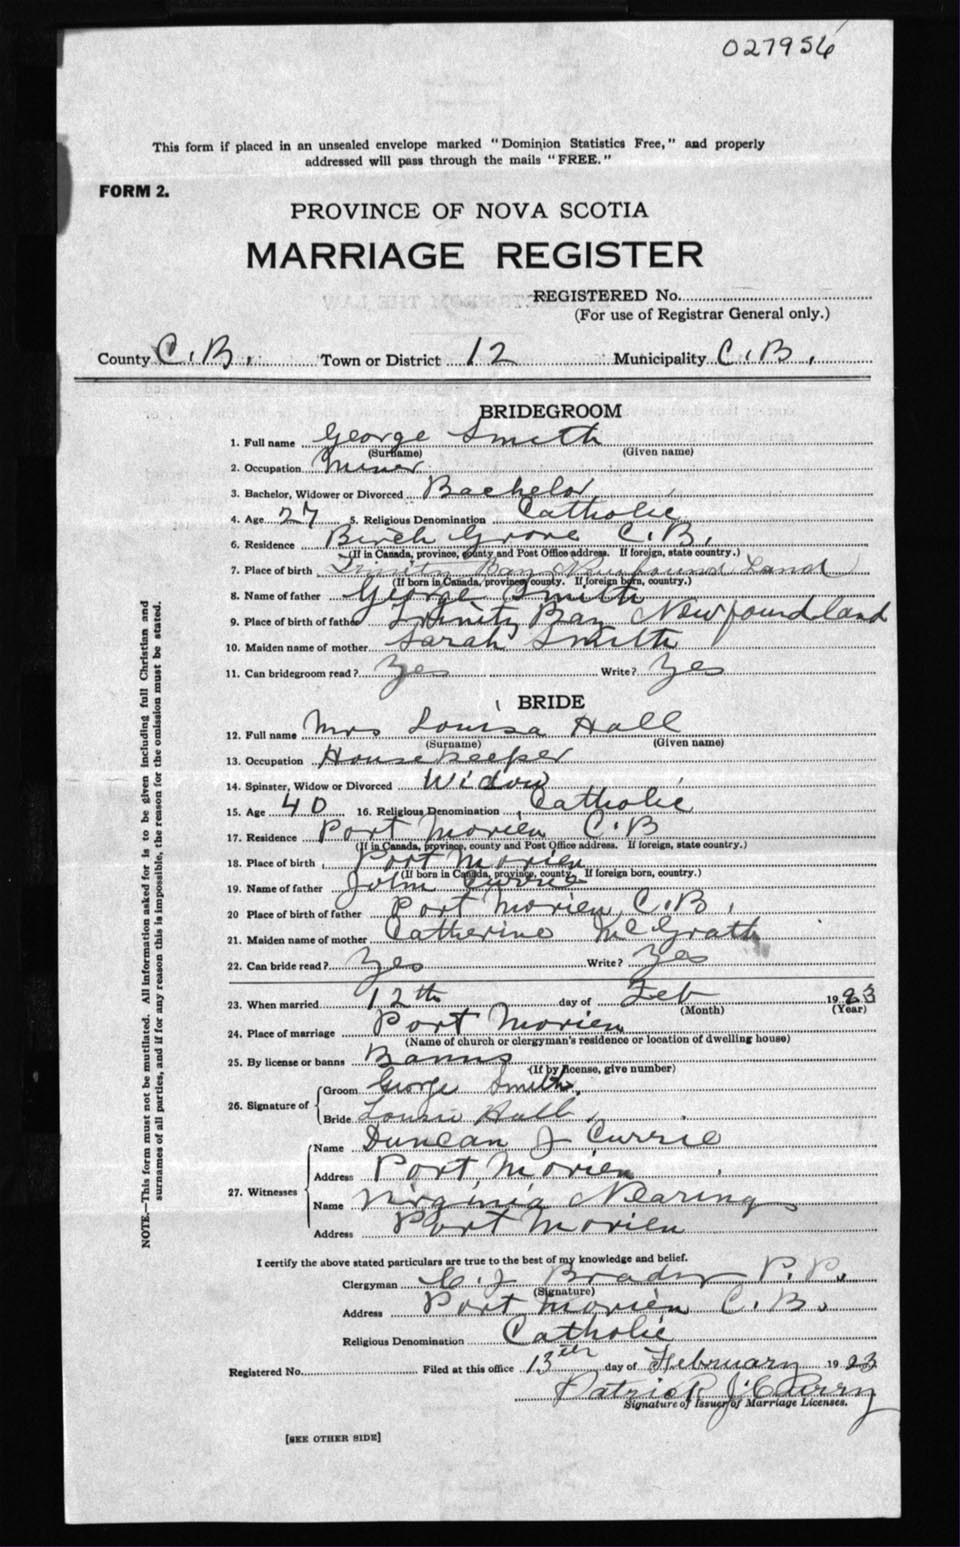 027956
This form if placed in an unsealed envelope marked "Dominion Statistics Free," and properly
addressed will pass through the mails "FREE."
FORM 2.
PROVINCE OF NOVA SCOTIA
MARRIAGE REGISTER
REGISTERED No.
(For use of Registrar General only.)
County C.B. Town or District 12 Municipality C.B.
BRIDEGROOM
1. Full name George Smith
(Surname) (Given name)
2. Occupation Miner
3. Bachelor, Widower or Divorced Bachelor
4. Age 27 5. Religious Denomination Catholic
6. Residence Birch Grove C.B.
(If in Canada, province, county and Post Office address. If foreign, state country.)
7. Place of birth Trinity Bay Newfound Land
(If born in Canada, province, county. If foreign born, country.)
8. Name of father George Smith
9. Place of birth of father Trinity Bay Newfoundland
10. Maiden name of mother Sarah Smith
11. Can bridegroom read? Yes Write? Yes
BRIDE
12. Full name Mrs Louisa Hall
(Surname) (Given name)
13. Occupation Housekeeper
14. Spinster, Widow or Divorced Widow
15. Age 40 16. Religious Denomination Catholic
17. Residence Port Morien C.B
(If in Canada, province, county and Post Office address. If foreign, state country.)
18. Place of birth Port Morien
(If born in Canada, province, county. If foreign born, country.)
19. Name of father John Currie
20 Place of birth of father Port Morien, C.B.
21. Maiden name of mother Catherine McGrath
22. Can bride read? Yes Write? Yes
23. When married 12th day of Feb 1923
(Month) (Year)
24. Place of marriage Port Morien
(Name of church or clergyman's residence or location of dwelling house)
25. By license or banns Banns
(If by license, give number)
26. Signature of Groom George Smith.
Bride Louise Hall
27. Witnesses Name Duncan J Currie
Address Port Morien
Name Virginia Nearing
Address Port Morien
I certify the above stated particulars are true to the best of my knowledge and belief.
Clergyman C. J Brady P.P.
(Signature)
Address Port Morien C.B.
Religious Denomination Catholic
Registered No. Filed at this office 13th day of February 1923
Patrick J.
Signature of Issuer of Marriage Licenses.
[SEE OTHER SIDE]
NOTE.—This form must not be mutilated. All information asked for is to be given including full Christian and
surnames of all parties, and if for any reason this is impossible, the reason for the omission must be stated.